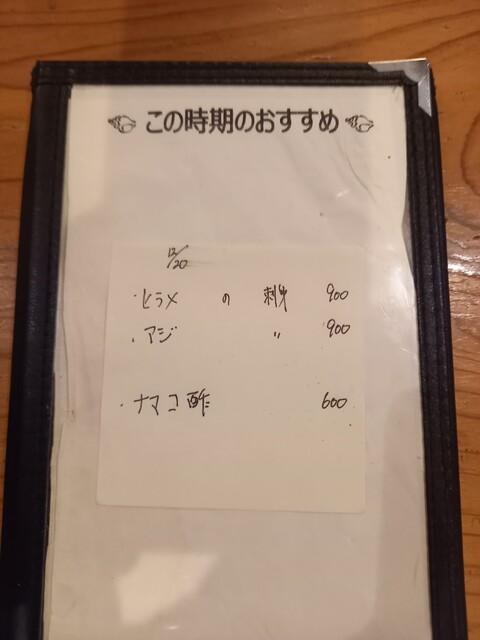 この時期のおすすめ
12/20
・ヒラメ の 刺身 900
・アジ 〃 900
・ナマコ酢 600